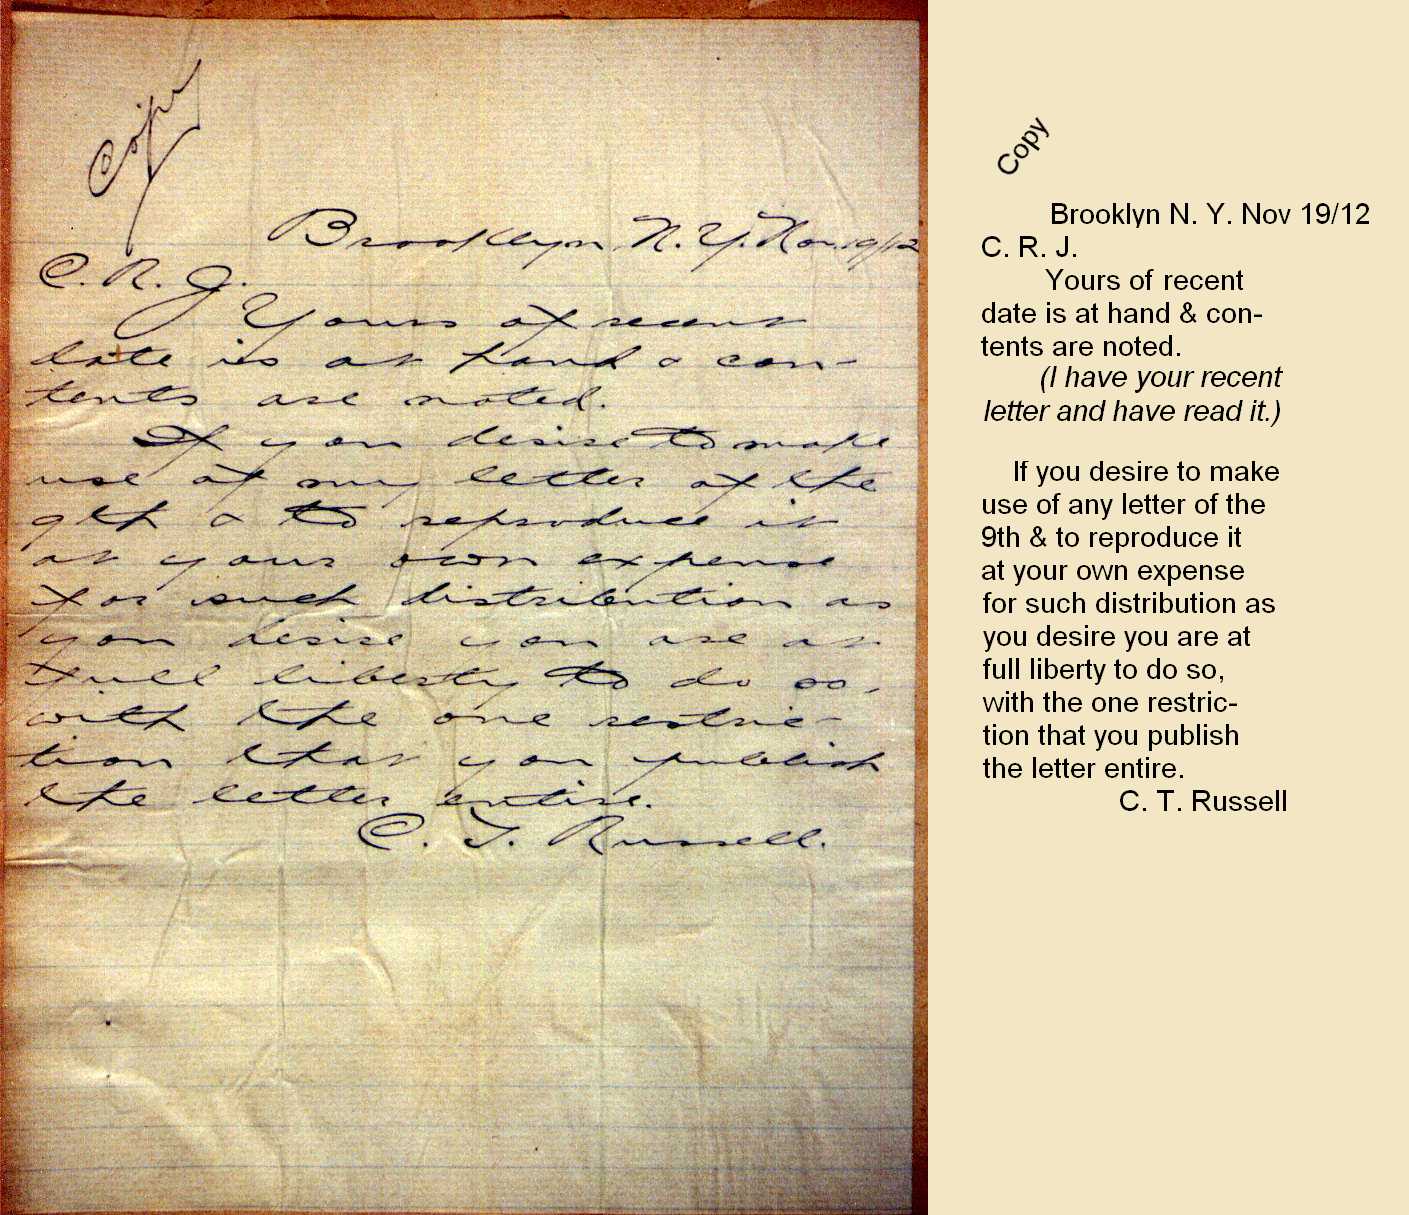 Copy
Brooklyn N. Y. Nov. 19/12
C. R. J.
Yours of recent
date is at hand & con-
tents are noted.
If you desire to make
use of my letter of the
9th & to reproduce it
at your own expense
for such distribution as
you desire you are at
full liberty to do so,
with the one restric-
tion that you publish
the letter entire.
C. T. Russell.
Copy
Brooklyn N. Y. Nov 19/12
C. R. J.
Yours of recent
date is at hand & con-
tents are noted.
(I have your recent
letter and have read it.)
If you desire to make
use of any letter of the
9th & to reproduce it
at your own expense
for such distribution as
you desire you are at
full liberty to do so,
with the one restric-
tion that you publish
the letter entire.
C. T. Russell